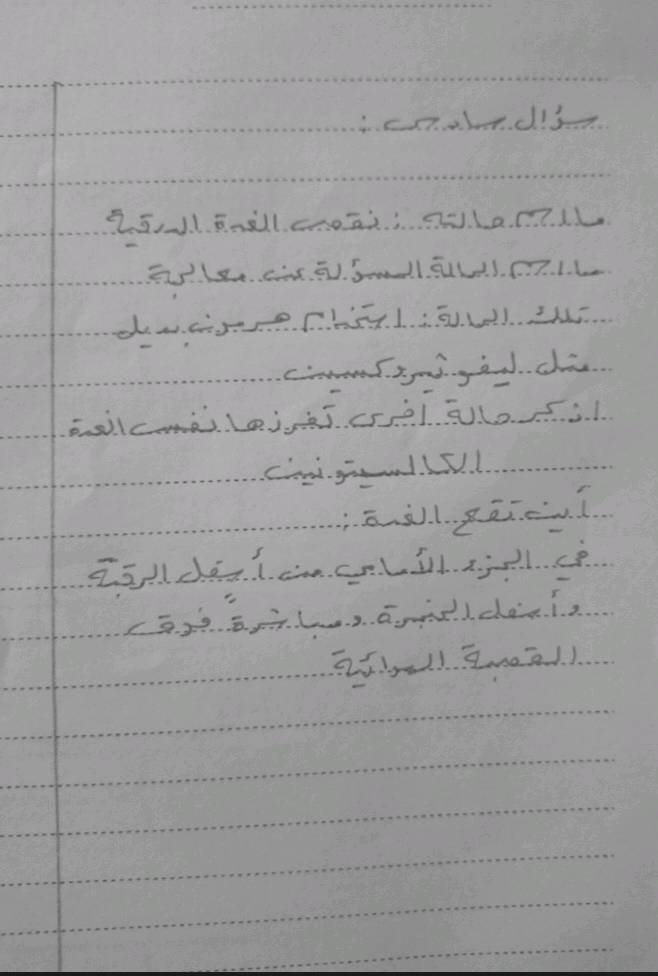 سؤال سادس :
ما اسم حالته : نقص الغدة الدرقية
ما اسم الحالة المسؤلة عن معالجة
تلك الحالة : استخدام هرمون بديل
مثل ليفوثيروكسين
اذكر حالة أخرى تفرزها نفس الغدة
الكالسيتونين
أين تقع الغدة :
في الجزء الأمامي من أسفل الرقبة
وأسفل الحنجرة ومباشرةً فوق
القصبة الهوائية